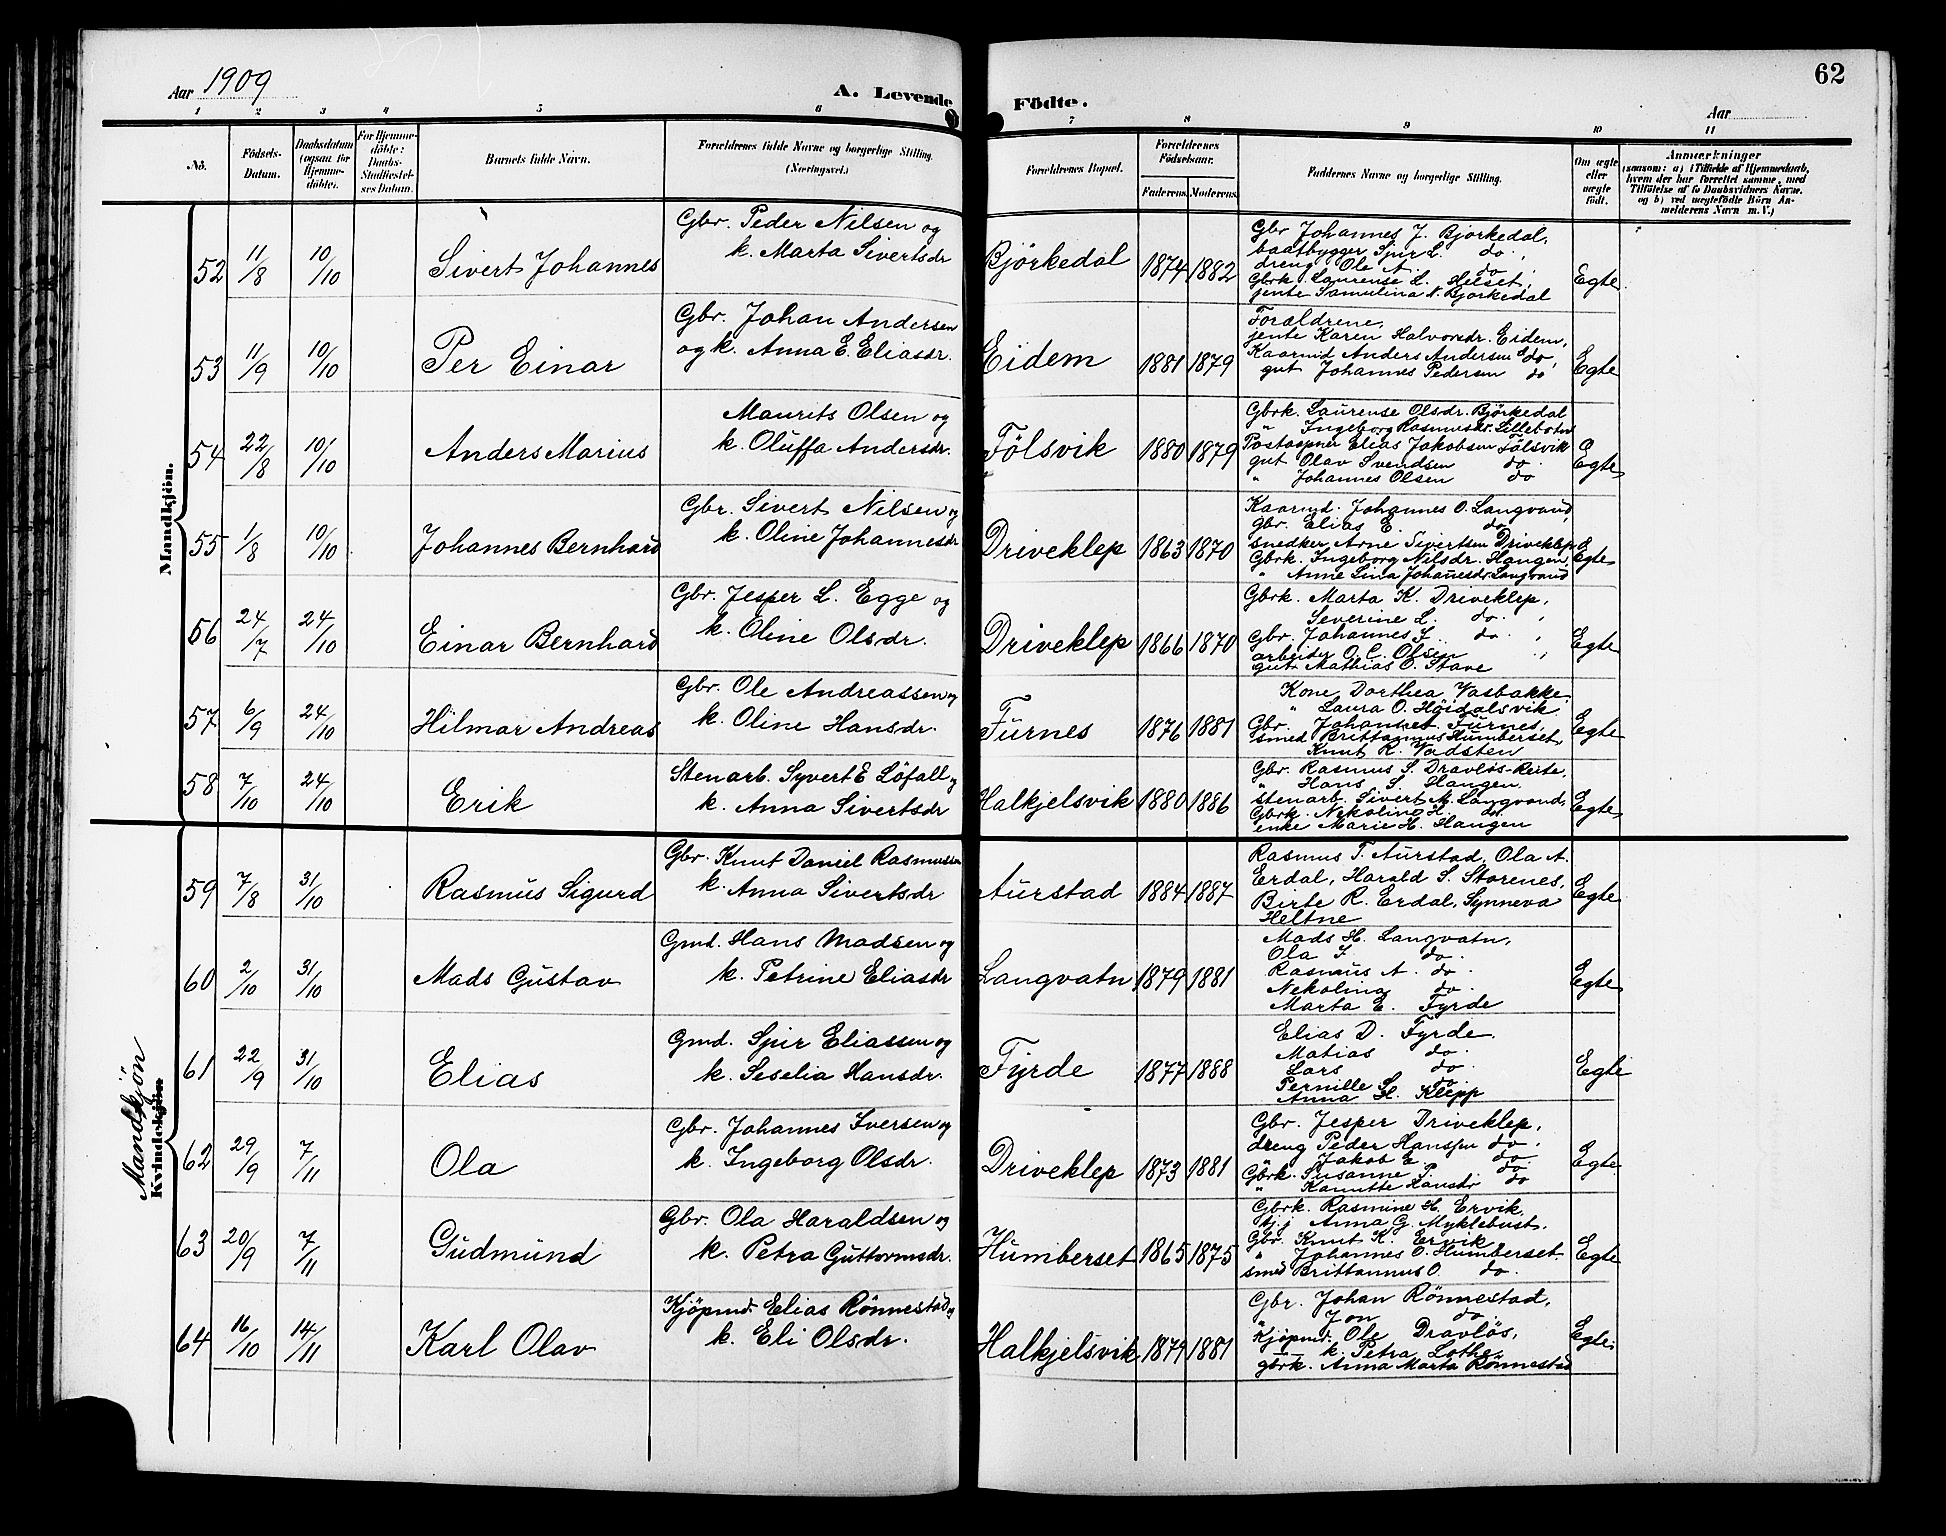 Aar 1909
A. Levende
Födte.
Aar
62
1 2 3 4 5 6 7 8 9 10 11
No.
Födsels-Datum.
Daabsdatum (ogsaa for Hjemmedöbte).
For Hjemmedöbte: Daabs-Stadfæstelses Datum.
Barnets fulde Navn.
Forældrenes fulde Navne og borgerlige Stilling. (Næringsvei.)
Forældrenes Bopæl.
Forældrenes Födselsaar.
Faderens. Moderens.
Faddernes Navne og borgerlige Stilling.
Om ægte eller uægte födt.
Anmærkninger
(saasom: a) i Tilfælde af Hjemmedaab, hvem der har forrettet samme, med Tilföielse af to Daabsvidners Navne. og b) ved uægtefödte Börn Anmelderens Navn m. V.)
Mandkjön.
52 11/8 10/10 Sivert Johannes
Gbr. Peder Nilsen og
k. Marta Sivertsdr
Björkedal 1874 1882
Gbr Johannes J. Björkedal,
baatbygger Spir L. do.,
dreng Ole A. do,
Gbrk. Laurense L. Helset,
jente Samulina N. Björkedal
Egte
53 11/9 10/10 Per Einar
Gbr. Johan Andersen
og k. Anna E. Eliasdr.
Eidem 1881 1879
Forældrene,
jente Karen Halvorsdr. Eidem,
Kaarmd Anders Andersen do,
gut Johannes Pedersen do
Egte
54 22/8 10/10 Anders Marius
Maurits Olsen og
k. Oluffa Andersdr.
Fölsvik 1880 1879
Gbrk. Laurense Olsdr. Björkedal
" Ingeborg Rasmusdr. Lillebotn
Postaapner Elias Jakobsen Fölsvik
gut Olav Svendsen do.
" Johannes Olsen do
Egte
55 1/8 10/10 Johannes Bernhard
Gbr. Sivert Nilsen og
k. Oline Johannesdr
Driveklep 1863 1870
Kaarmd. Johannes O. Langvand,
gbr. Elias E. do
snedker Arne Sivertsen Driveklep
Gbrk. Ingeborg Nilsdr. Haugen,
" Anne Lina Johanesdr. Langvand
Egte
56 24/7 24/10 Einar Bernhard
Gbr. Jesper L. Egge og
k. Oline Olsdr.
Driveklep 1866 1870
Gbrk. Marta K. Driveklep,
Severine L. do. ,
Gbr. Johannes I. do. ,
arbeider O. C. Olsen ",
gut Mathias O. Stave
Egte
57 6/9 24/10 Hilmar Andreas
Gbr. Ole Andreassen og
k. Oline Hansdr.
Furnes 1876 1881
Kone Dorthea Vasbakke,
" Laura O. Höidalsvik
Gbr. Johannes Furnes,
smed Brittannus Humberset,
Knut R. Vadsten
Egte
58 7/10 24/10 Erik
Stenarb. Syvert E Löfall og
k. Anna Sivertsdr
Halkjelsvik 1880 1886
Gbr. Rasmus S. Dravlös-Reite,
" Hans S. Haugen
stenarb. Sivert M. Langvand,
Gbrk. Nekoline H. do.
enke Marie H. Haugen
Egte
Mandkjön
Kvindekjön
59 7/8 31/10 Rasmus Sigurd
Gbr. Knut Daniel Rasmussen
k. Anna Sivertsdr
Aurstad 1884 1887
Rasmus T. Aurstad, Ola A.
Erdal, Harald S. Storenes,
Birte R. Erdal, Synneva
Heltne
Egte
60 2/10 31/10 Mads Gustav
Gmd. Hans Madsen og
k. Petrine Eliasdr
Langvatn 1879 1881
Mads H. Langvatn,
Ola I. do.
Rasmus A. do.
Nekolina do.
Marta E. Fyrde
Egte
61 22/9 31/10 Elias
Gmd. Spir Eliassen og
k. Seselia Hansdr.
Fyrde 1877 1888
Elias D. Fyrde.
Matias do.
Lars do.
Pernille Sl. do
Anna Sl. Klepp
Egte
62 29/9 7/11 Ola
Gbr. Johannes Iversen og
k. Ingeborg Olsdr.
Driveklep 1873 1881
Gbr. Jesper Driveklep,
dreng Peder Hanssen do.
" Jakob E. do.
Gbrk. Susanne P. do.
" Hansdr do
Egte
63 20/9 7/11 Gudmund
Gbr. Ola Haraldsen og
k. Petra Guttormsdr.
Humberset 1865 1875
Gbrk. Rasmine H. Ervik,
Anna G. Myklebust.
Gbr. Knut K. Ervik,
" Johannes O. Humberset
smed Brittannus O. do.
Egte
64 16/10 14/11 Karl Olav
Kjöpmd. Elias Rönnestad og
k. Eli Olsdr.
Halkjelsvik 1879 1881
Gbr. Johan Rönnestad,
" Jon do.
Kjöpmd. Ole Dravlös,
k. Petra Lothe
gbrk. Anna Marta Rönnestad
Egte